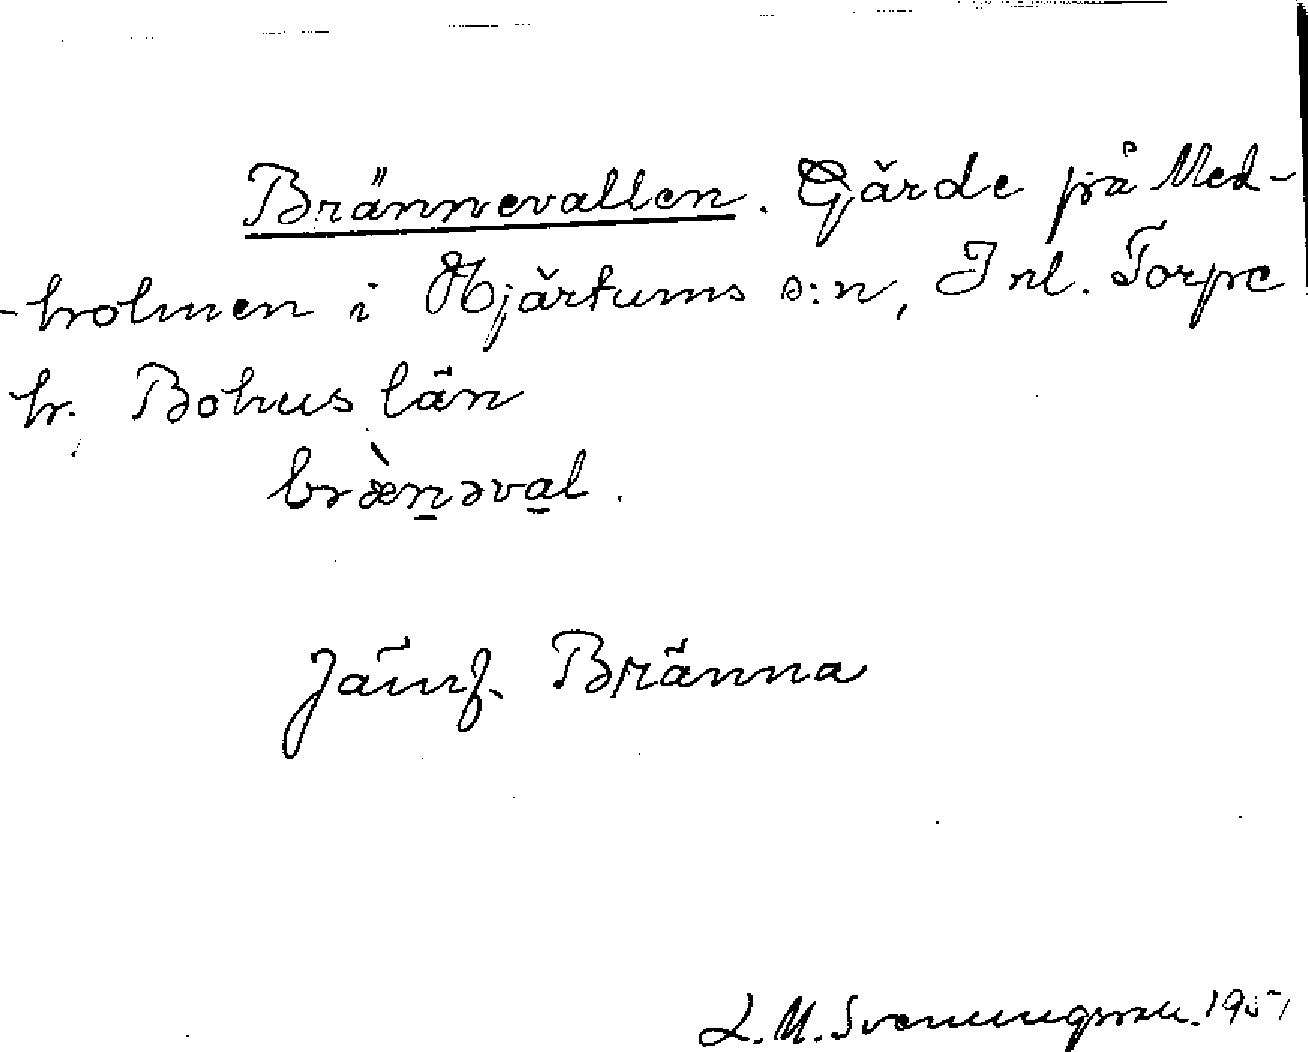 Brännevallen. Gärde på Med-
-holmen i Hjärtums s:n, Inl. Torpe
hr. Bohus län
bræ̀n̲əva̲l.
Jämf. Bränna
L. M. Svenungsson. 1951